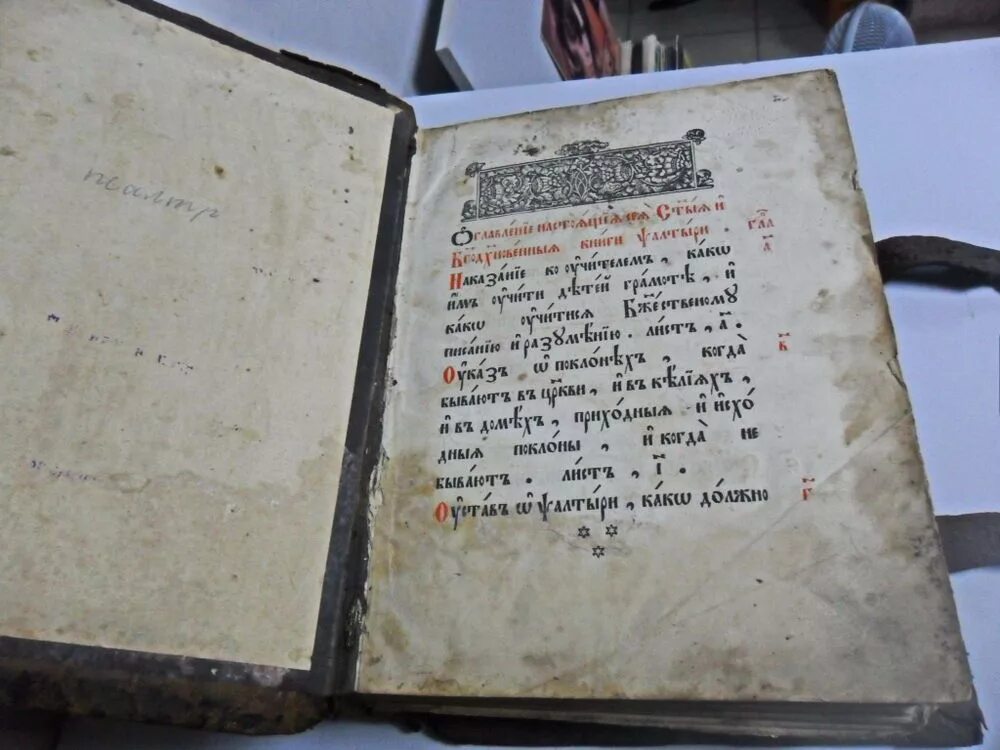 псалтир
Ѡ҆главле́нїе настоѧ́щїѧ сеѧ̀ Ст҃ы́ѧ и҆
Бг҃одх҃нове́нныѧ кни́ги ѱалты́ри . гла҃
Наказа́нїе ко ᲂу҆чи́телемъ , ка́кѡ а҃
и҆̀мъ ᲂу҆чи́ти дѣте́й гра́мотѣ , и҆
ка́кѡ ᲂу҆чи́тисѧ Бж҃е́ственому
писа́нїю и҆ разꙋмѣ́нїю . ли́стъ , а҃ .
Оу҆ка́зъ ѡ҆ покло́нѣхъ , когда̀ в҃
быва́ютъ въ цр҃кви , и҆ въ кѣ́лїѧхъ ,
и҆ въ домѣ́хъ , прихо́дныѧ и҆ и҆схо́
дныѧ покло́ны , и҆ когда̀ не
быва́ютъ . ли́стъ , і҃ .
Оу҆ста́въ ѡ҆ ѱалты́ри , ка́кѡ до́лжно г҃